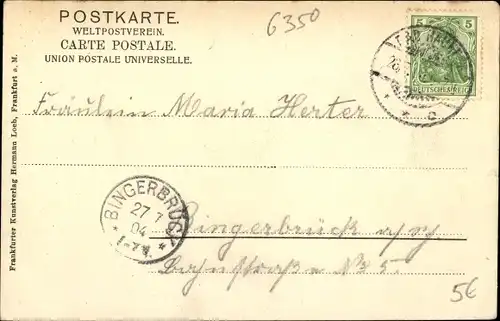 POSTKARTE.
WELTPOSTVEREIN.
CARTE POSTALE.
UNION POSTALE UNIVERSELLE.
6350
5 5
DEUTSCHES REICH
C
Fräulein Maria Herter
BINGERBRÜCK
27 7
04
Bingerbrück
Bahnstraße No 5.
5€
Frankfurter Kunstverlag Hermann Loeb, Frankfurt a. M.